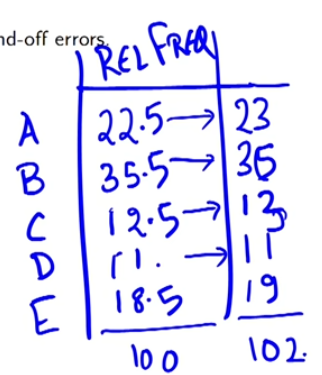 nd-off errors.
REL FREQ
A 22.5 → 23
B 35.5 → 36
C 12.5 → 13
D 11. → 11
E 18.5 19
100 102.